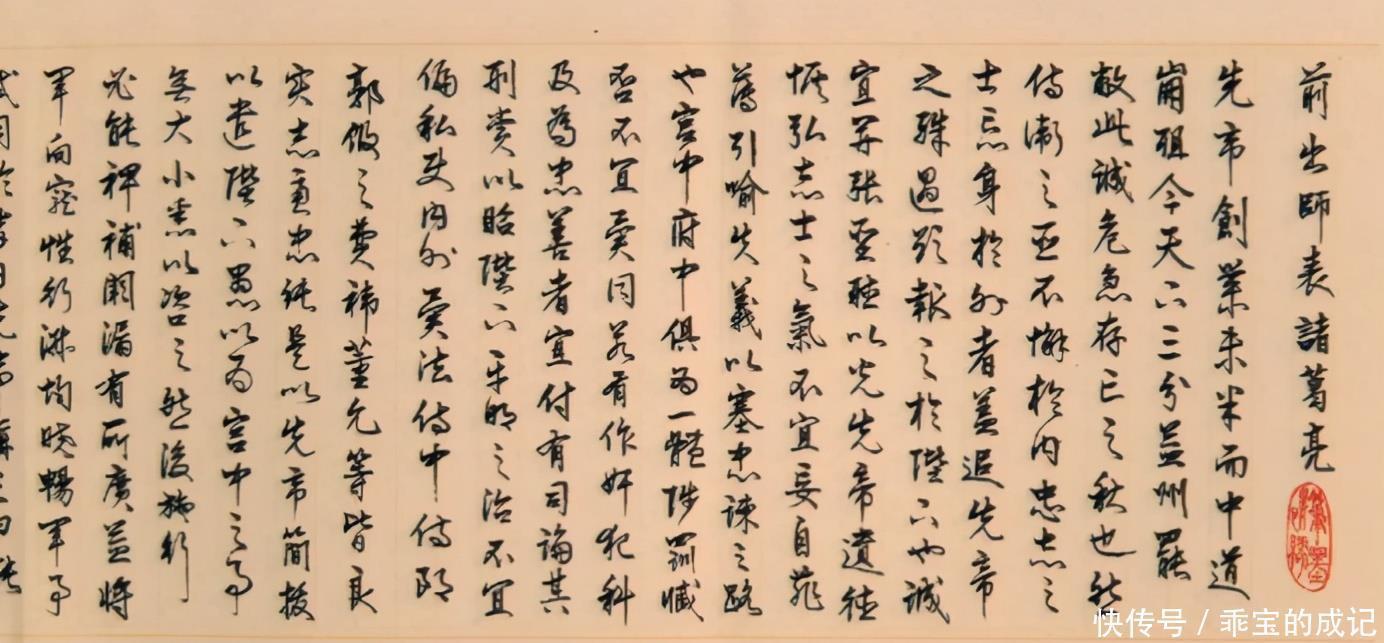 前出師表諸葛亮
先帝創業未半而中道
崩殂今天下三分益州罷
敝此誠危急存亡之秋也然
侍衛之臣不懈於內忠志之
士忘身於外者蓋追先帝
之殊遇欲報之於陛下也誠
宜開張聖聽以光先帝遺德
恢弘志士之氣不宜妄自菲
薄引喻失義以塞忠諫之路
也宮中府中俱為一體陟罰臧
否不宜異同若有作奸犯科
及為忠善者宜付有司論其
刑賞以昭陛下平明之治不宜
偏私使內外異法侍中侍郎
郭攸之費禕董允等皆良
實志慮忠純是以先帝簡拔
以遺陛下愚以為宮中之事
無大小悉以咨之然後施行
必能裨補闕漏有所廣益將
軍向寵性行淑均曉暢軍事
試用於昔日先帝稱之曰能
快传号 / 乖宝的成记